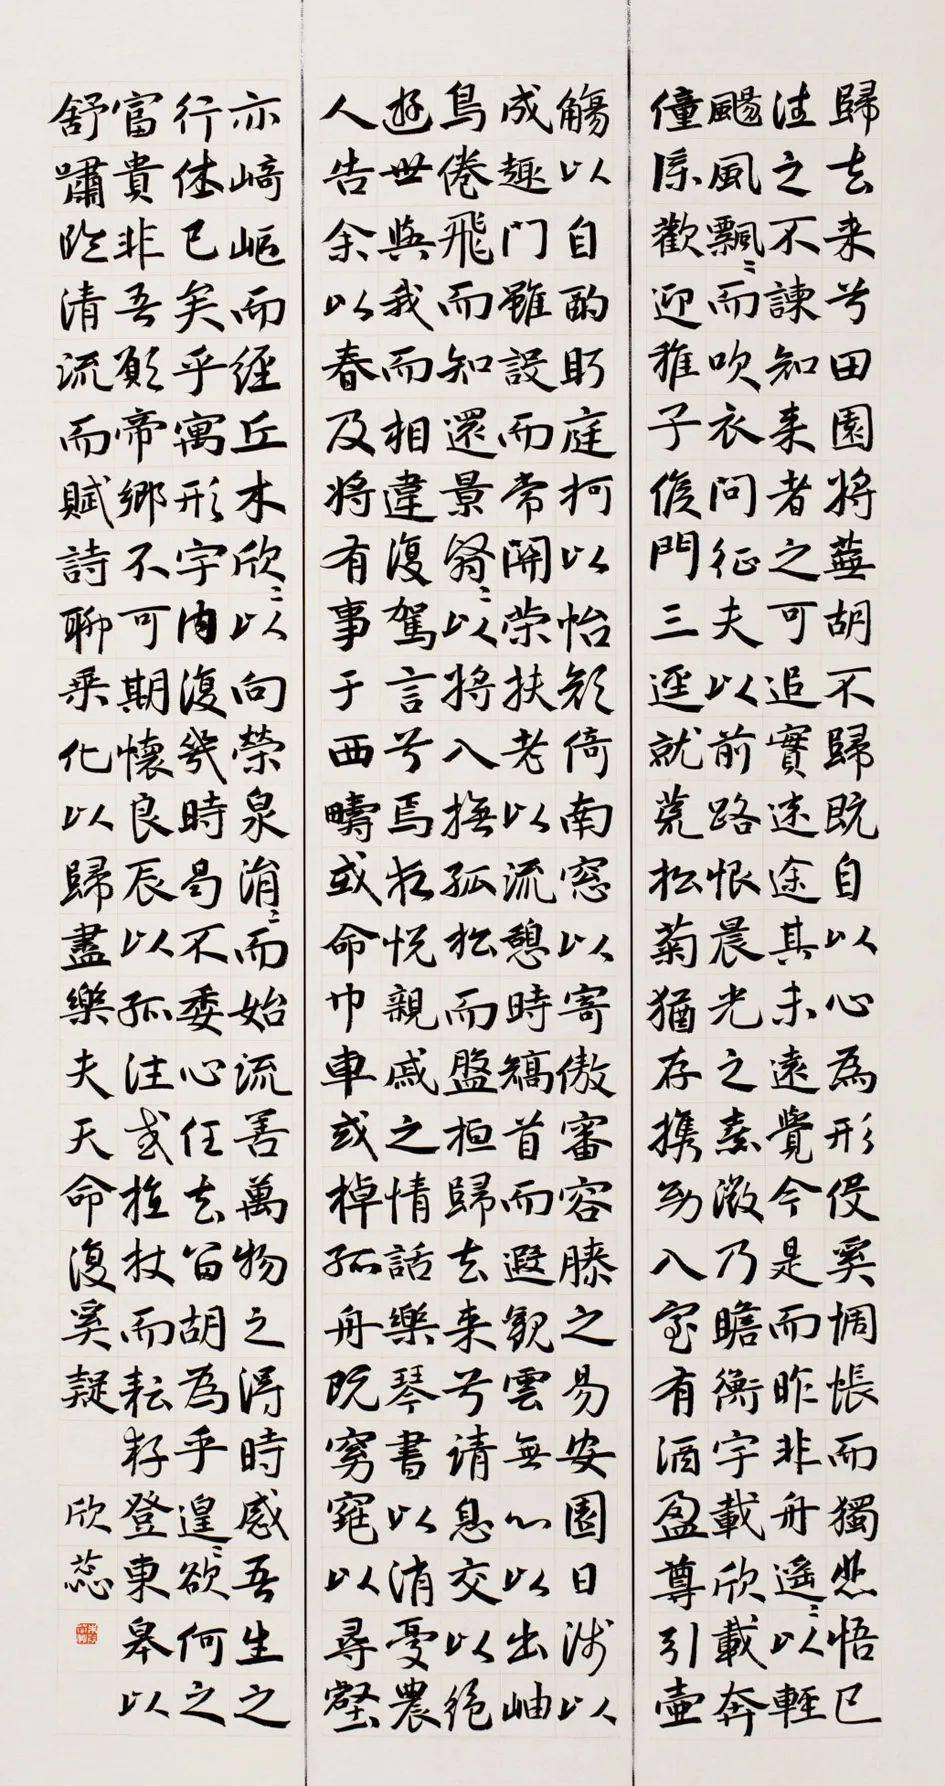 歸去来兮田園將蕪胡不歸既自以心為形役奚惆悵而獨悲悟已
往之不諫知来者之可追實迷途其未遠覺今是而昨非舟遥〻以輕
颺風飄〻而吹衣問征夫以前路恨晨光之熹微乃瞻衡宇載欣載奔
僮僕歡迎稚子候門三逕就荒松菊猶存攜幼入室有酒盈尊引壺
觴以自酌眄庭柯以怡顏倚南窓以寄傲審容膝之易安園日涉以
成趣門雖設而常開策扶老以流憩時矯首而遐觀雲無心以出岫
鳥倦飛而知還景翳〻以將入撫孤松而盤桓歸去来兮請息交以絕
遊世與我而相違復駕言兮焉求悦親戚之情話樂琴書以消憂農
人告余以春及將有事于西疇或命巾車或棹孤舟既窈窕以尋壑
亦崎嶇而經丘木欣〻以向榮泉涓〻而始流善萬物之得時感吾生之
行休已矣乎寓形宇内復幾時曷不委心任去留胡為乎遑〻欲何之
富貴非吾願帝鄉不可期懷良辰以孤往或植杖而耘耔登東皋以
舒嘯臨清流而賦詩聊乘化以歸盡樂夫天命復奚疑 欣蕊